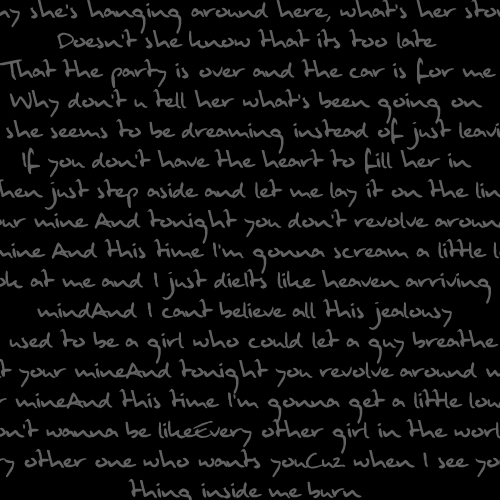 she's hanging around here, what's her
Doesn't she know that its too late
That the party is over and the car is for me
Why don't u tell her what's been going on
she seems to be dreaming instead of just
If you don't have the heart to fill her in
just step aside and let me lay it on the
mine And tonight you don't revolve
mine And this time I'm gonna scream a little
at me and I just dieIts like heaven arriving
mindAnd I cant believe all this jealousy
used to be a girl who could let a guy breathe
your mineAnd tonight you revolve around
mineAnd this time I'm gonna get a little
wanna be likeEvery other girl in the
other one who wants youCuz when I see
thing inside me burn